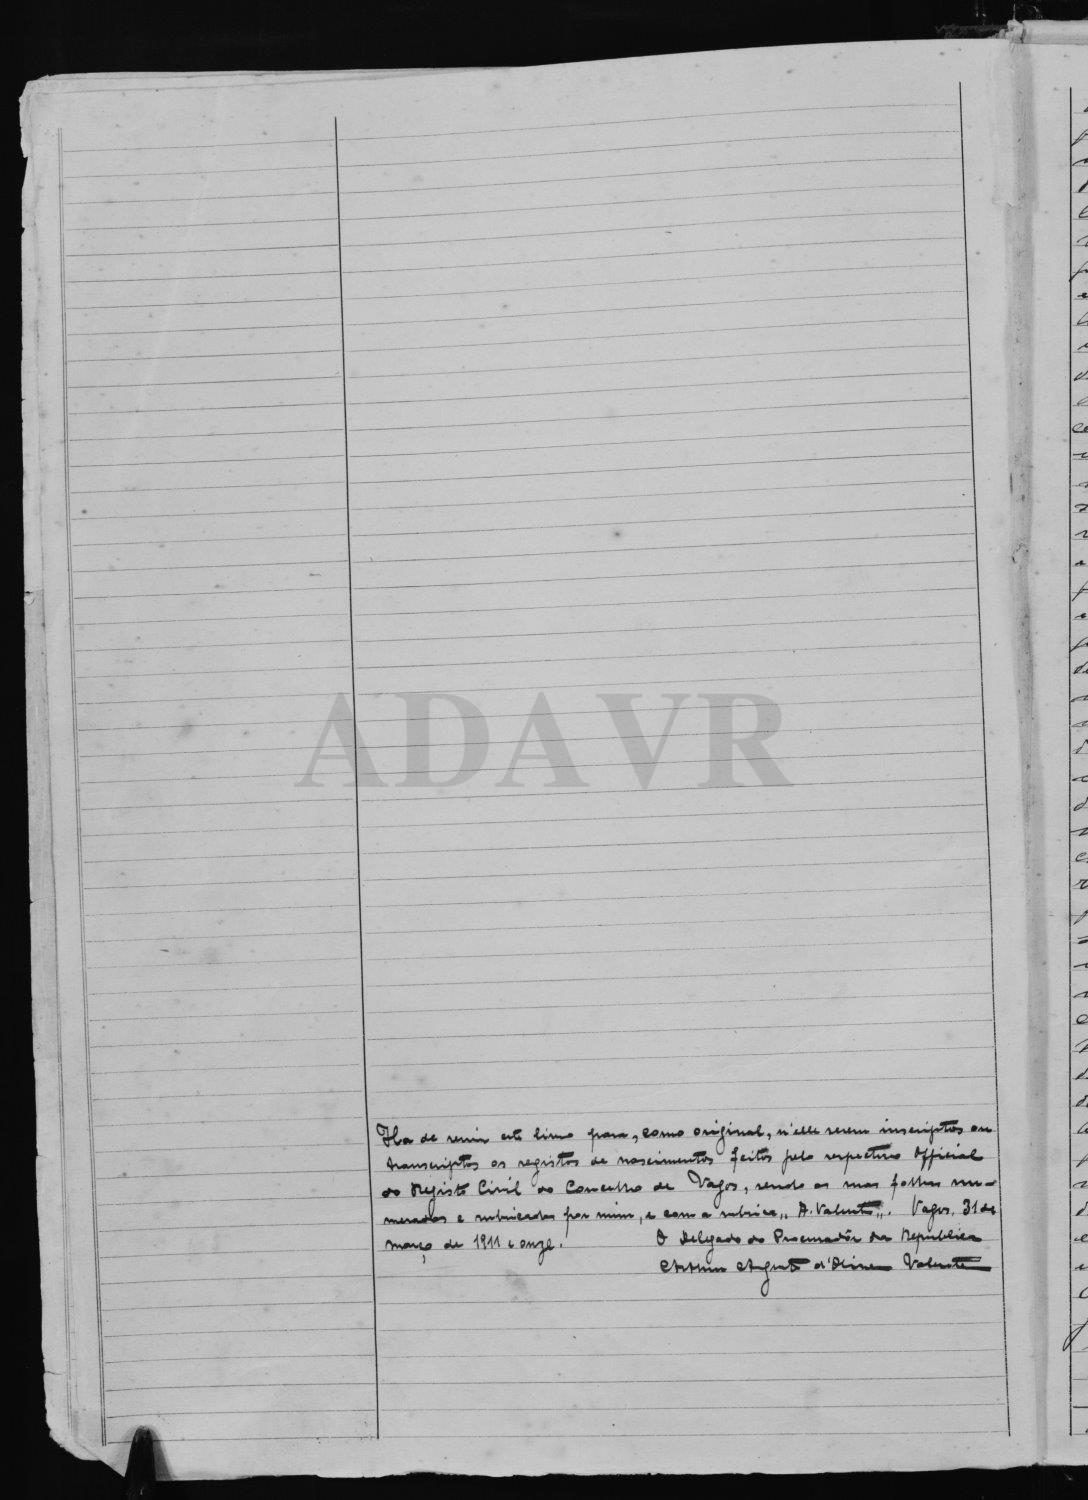 Ha de servir este livro para, como original, n'elle serem inscriptos ou
transcriptos os registos de nascimentos feitos pelo respectivo Official
do Registo Civil do Concelho de Vagos, sendo as suas folhas nu-
meradas e rubricadas por mim, e com a rubrica „A. Valente„. Vagos, 31 de
março de 1911 e onze.
O Delegado do Procuradôr da Republica
Arthur Augusto d'Oliveira Valente
ADAVR